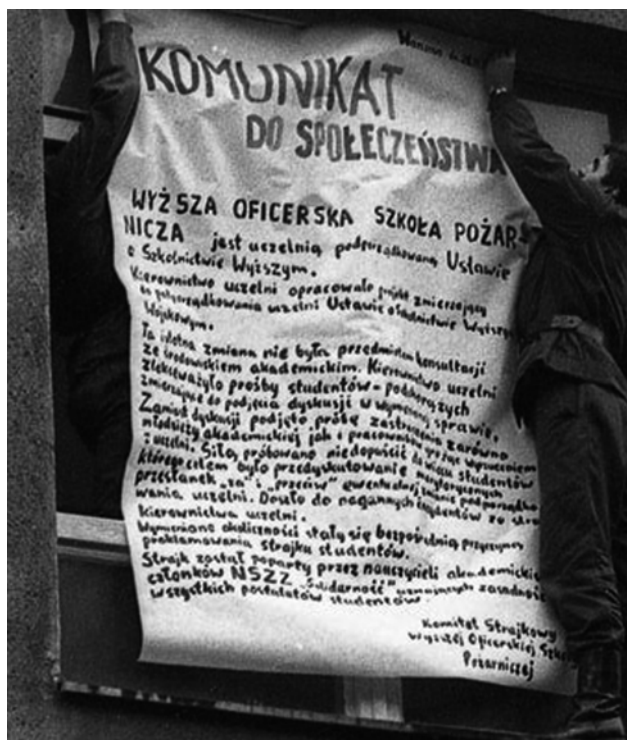 Warszawa
KOMUNIKAT
DO SPOŁECZEŃSTWA
WYŻSZA OFICERSKA SZKOŁA POŻAR-
NICZA jest uczelnią podporządkowaną Ustawie
o Szkolnictwie Wyższym.
Kierownictwo uczelni opracowało projekt zmierzający
do podporządkowania uczelni Ustawie o Szkolnictwie Wyższym
Wojskowym.
Ta istotna zmiana nie była przedmiotem konsultacji
ze środowiskiem akademickim. Kierownictwo uczelni
zlekceważyło prośby studentów-podchorążych
zmierzające do podjęcia dyskusji w wymienionej sprawie.
Zamiast dyskusji podjęto próbę zastraszenia zarówno
młodzieży akademickiej jak i pracowników grożąc wyrzuceniem
z uczelni. Siłą próbowano niedopuścić do wiecu studentów
którego celem było przedyskutowanie merytorycznych
przesłanek "za" i "przeciw" ewentualnej zmianie podporządko-
wania uczelni. Doszło do nagannych incydentów ze stro
kierownictwa uczelni.
Wymienione okoliczności stały się bezpośrednią przyczyną
proklamowania strajku studentów.
Strajk został poparty przez nauczycieli akademickic
członków NSZZ "Solidarność" uznających zasadność
wszystkich postulatów studentów.
Komitet Strajkowy
Wyższej Oficerskiej Szkoły
Pożarniczej